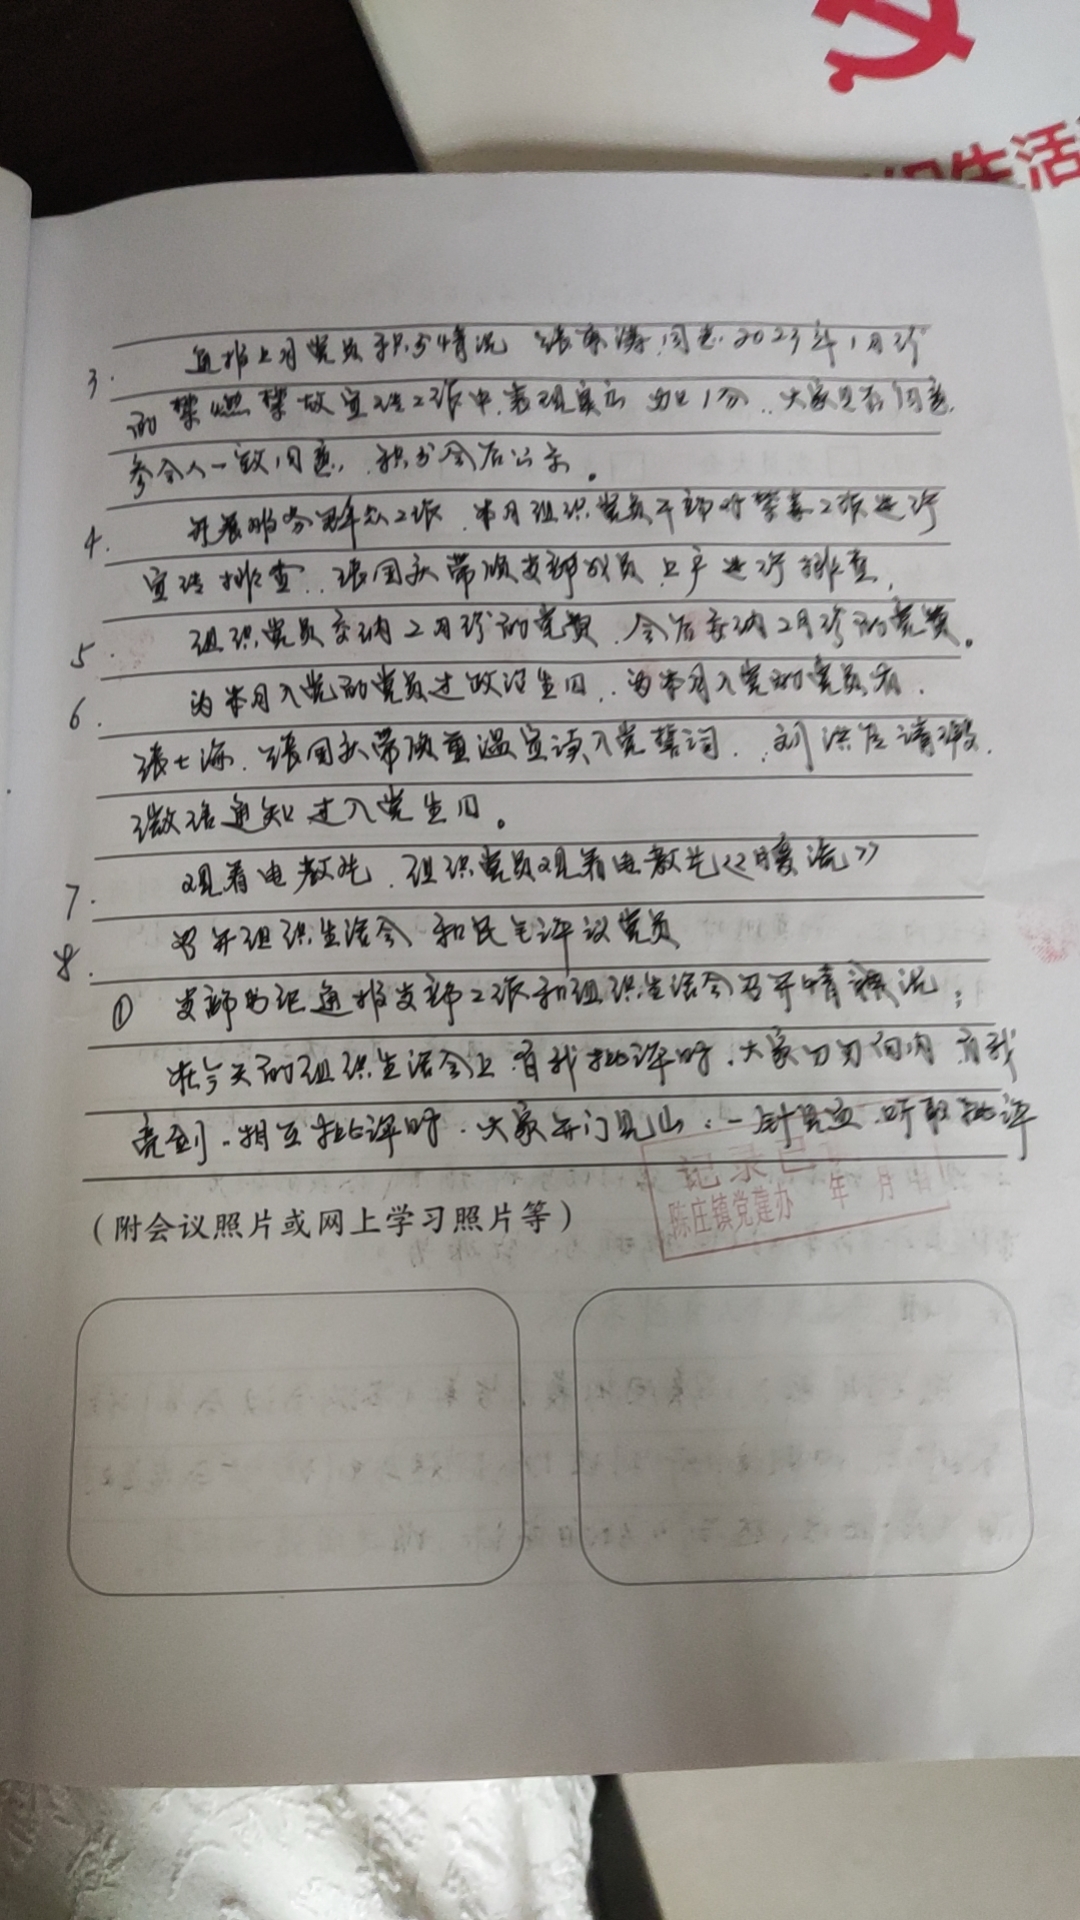 组织生活
3. 通报上月党员积分情况 张 同志 2023年1月份
的禁燃禁放宣传工作中,表现突出 加1分,大家是否同意,
参会人一致同意,积分会后公示。
4. 开展服务群众工作,本月组织党员干部对禁毒工作进行
宣传排查,张国庆带领支部成员 上户进行排查,
5. 组织党员交纳2月份的党费,会后交纳2月份的党费。
6. 为本月入党的党员过政治生日,为本月入党的党员有,
张七海,张国庆带领重温宣读入党誓词,刘洪 请假,
微信通知过入党生日。
7. 观看电教片,组织党员观看电教片《暖流》
8. 召开组织生活会和民主评议党员
① 支部书记通报支部工作和组织生活会召开情况;
在今天的组织生活会上自我批评时,大家刀刃向内 自我
亮剑,相互批评时,大家开门见山,一针见血,听取批评
(附会议照片或网上学习照片等)
记录已
陈庄镇党建办 年 月